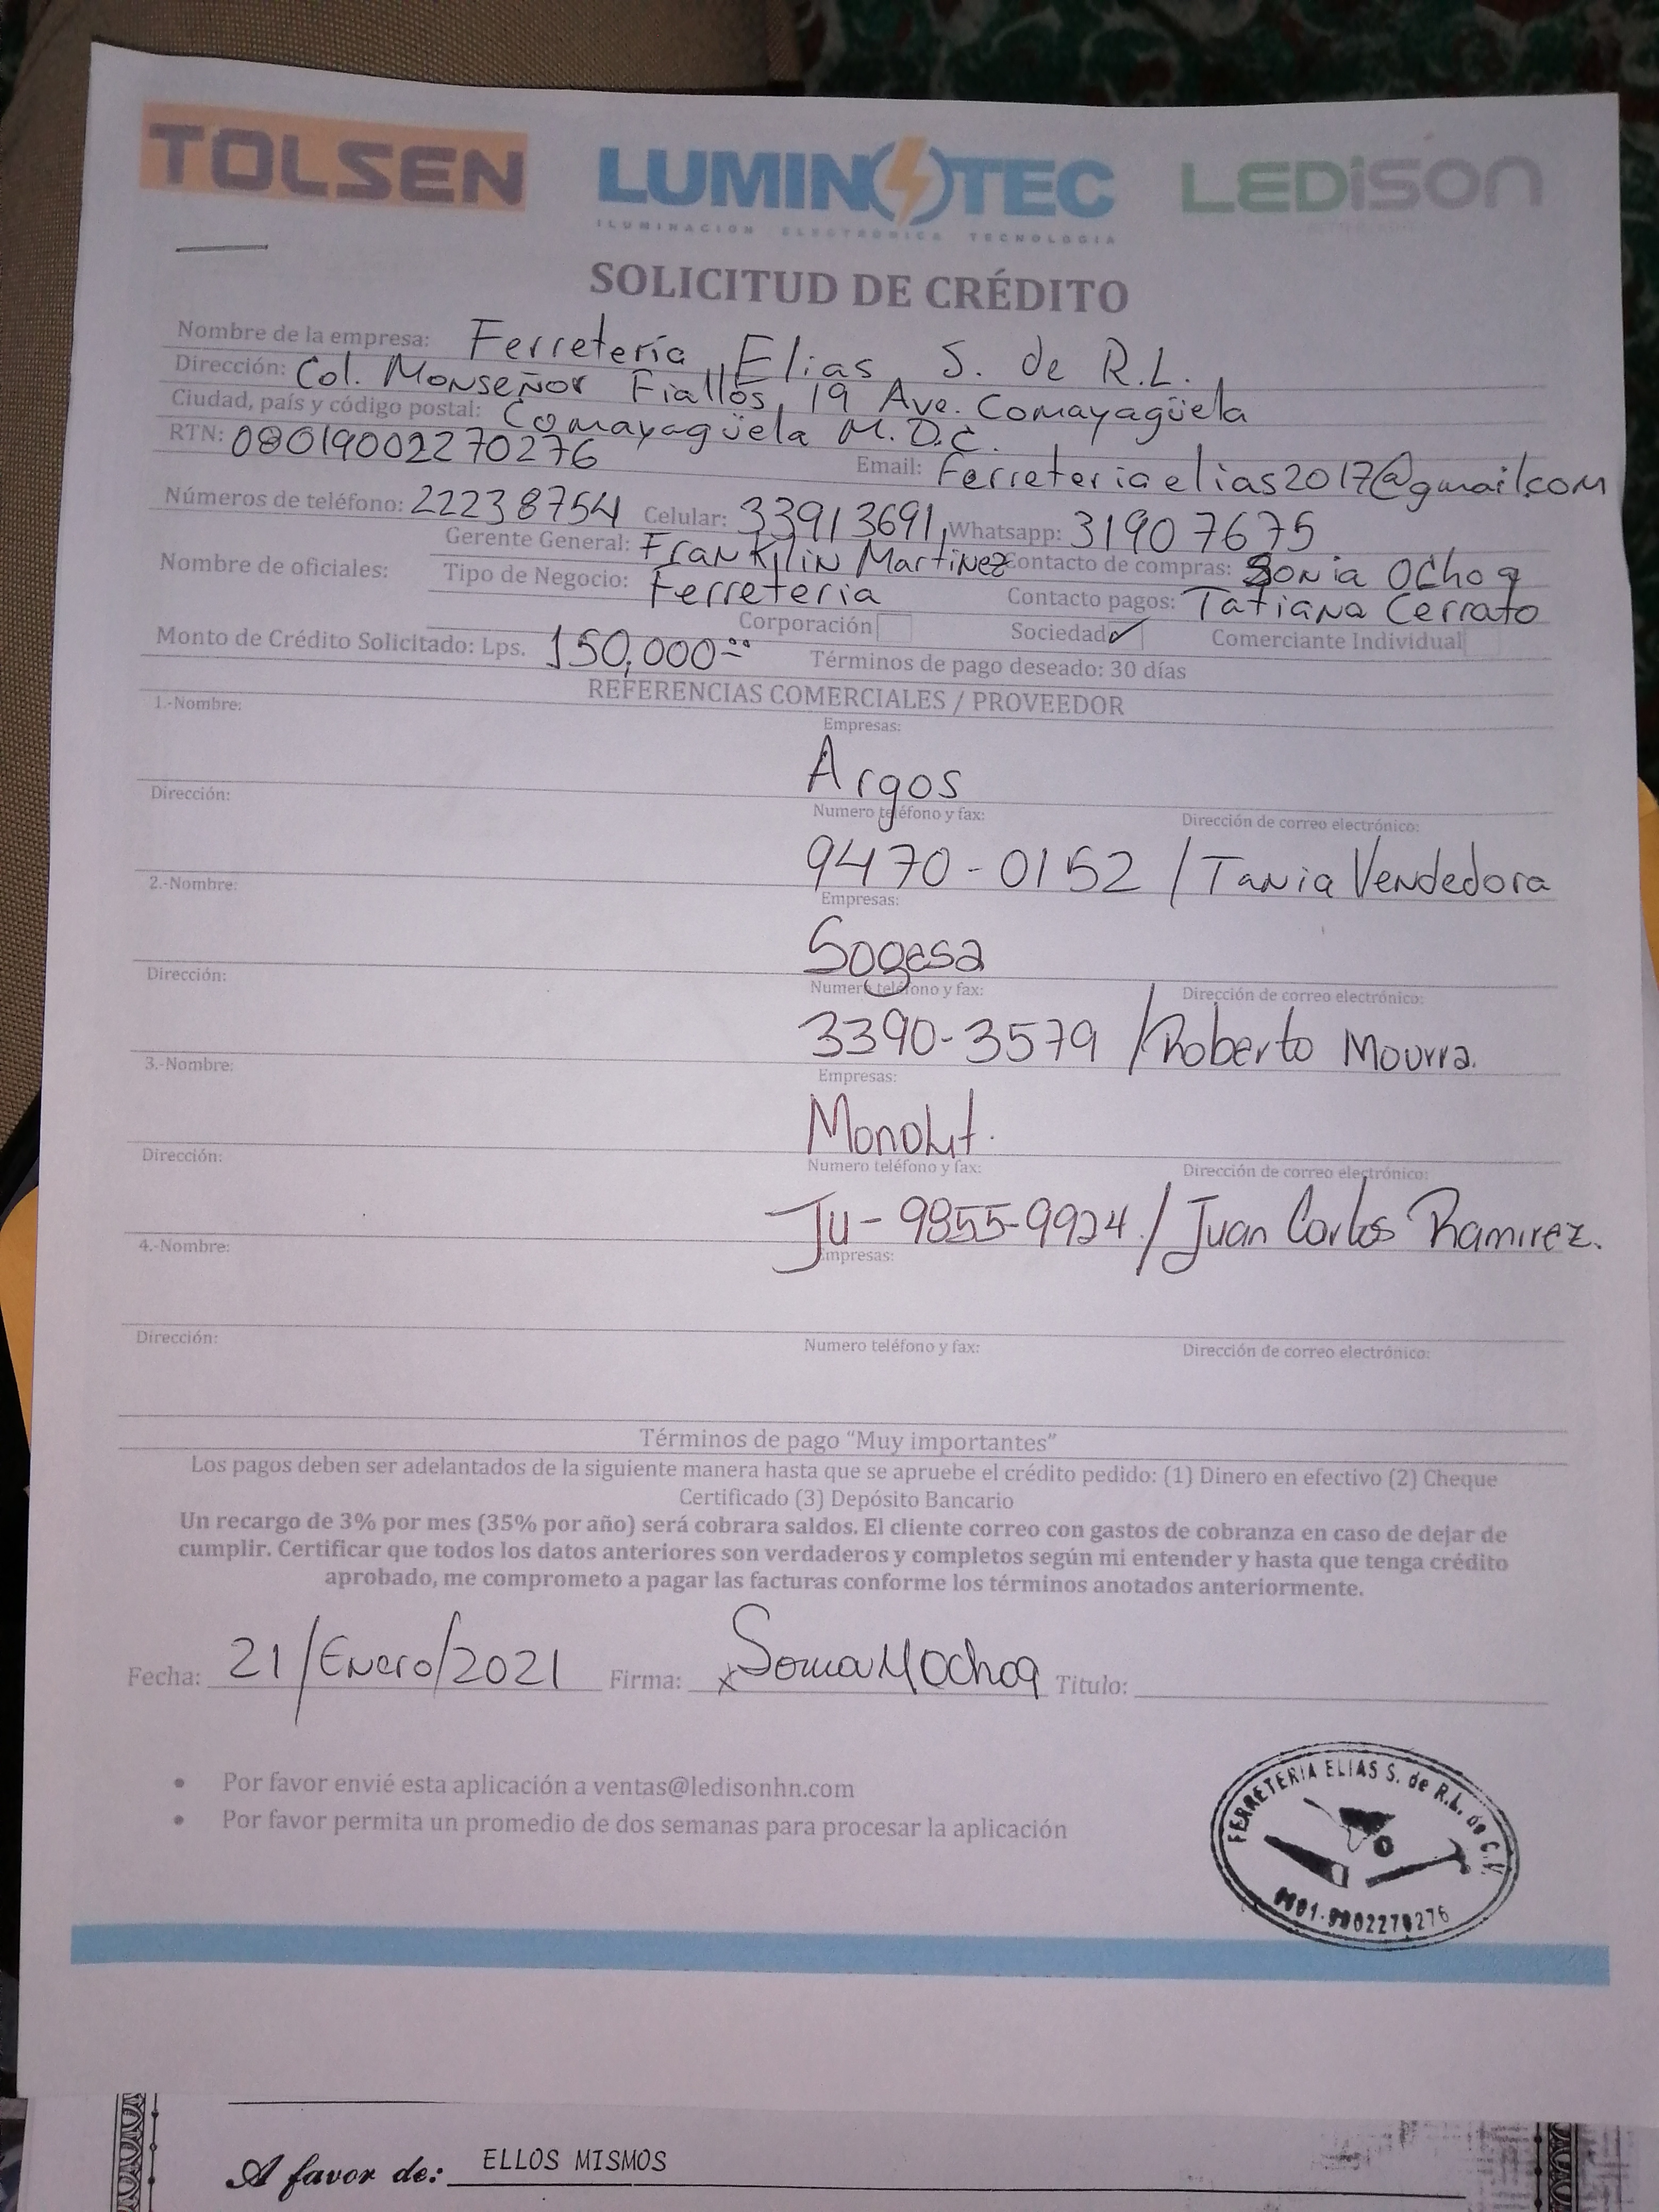 TOLSEN LUMINOTEC LEDiSON
ILUMINACION ELECTRONICA TECNOLOGIA
SOLICITUD DE CRÉDITO
Nombre de la empresa: Ferretería Elias S. de R.L.
Dirección: Col. Monseñor Fiallos, 19 Ave. Comayagüela
Ciudad, país y código postal: Comayagüela M.D.C.
RTN: 08019002270276 Email: Ferreteriaelias2017@gmail.com
Números de teléfono: 22238754 Celular: 33913691, Whatsapp: 31907675
Nombre de oficiales: Gerente General: Frankilin Martinez Contacto de compras: Sonia Ochoa
Tipo de Negocio: Ferreteria Contacto pagos: Tatiana Cerrato
Corporación Sociedad ✓ Comerciante Individual
Monto de Crédito Solicitado: Lps. 150,000.00 Términos de pago deseado: 30 días
REFERENCIAS COMERCIALES / PROVEEDOR
1.-Nombre: Empresas:
Argos
Dirección: Numero teléfono y fax: Dirección de correo electrónico:
9470-0152 / Tania Vendedora
2.-Nombre: Empresas:
Sogesa
Dirección: Numero teléfono y fax: Dirección de correo electrónico:
3390-3579 / Roberto Mourra.
3.-Nombre: Empresas:
Monolit.
Dirección: Numero teléfono y fax: Dirección de correo electrónico:
Ju - 9855-9924 / Juan Carlos Ramirez.
4.-Nombre: Empresas:
Dirección: Numero teléfono y fax: Dirección de correo electrónico:
Términos de pago “Muy importantes”
Los pagos deben ser adelantados de la siguiente manera hasta que se apruebe el crédito pedido: (1) Dinero en efectivo (2) Cheque
Certificado (3) Depósito Bancario
Un recargo de 3% por mes (35% por año) será cobrara saldos. El cliente correo con gastos de cobranza en caso de dejar de
cumplir. Certificar que todos los datos anteriores son verdaderos y completos según mi entender y hasta que tenga crédito
aprobado, me comprometo a pagar las facturas conforme los términos anotados anteriormente.
Fecha: 21/Enero/2021 Firma: x Sonia M Ochoa Titulo:
• Por favor envié esta aplicación a ventas@ledisonhn.com
• Por favor permita un promedio de dos semanas para procesar la aplicación
FERRETERIA ELIAS S. de R.L. de C.V.
0801-9002270276
A favor de: ELLOS MISMOS